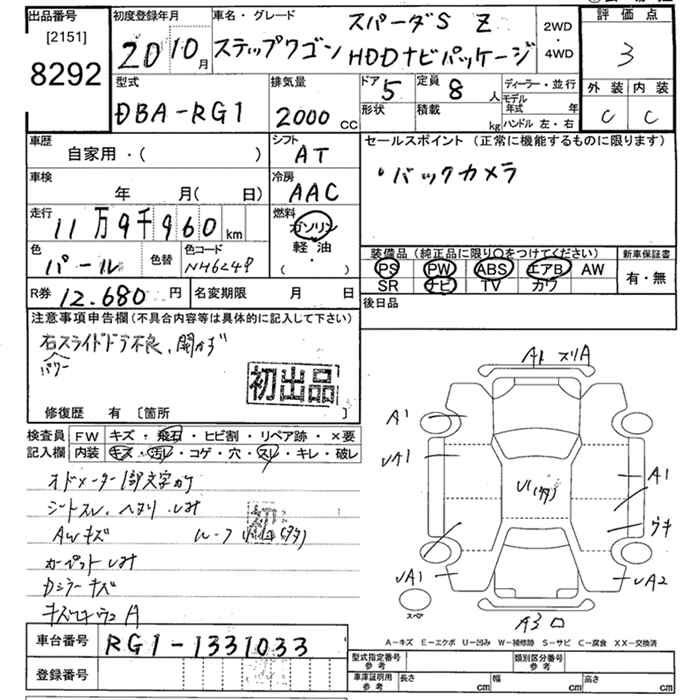 出品番号
[2151]
8292
初度登録年月
20 10月
車名・グレード
スパーダS Z
ステップワゴン HDDナビパッケージ
2WD
・
4WD
評価点
3
外装 内装
C C
型式
DBA-RG1
排気量
2000 CC
ドア 5
形状
定員 8 人
積載 kg
ディーラー・並行
モデル年式 年
ハンドル 左・右
車歴
自家用・( )
シフト
AT
セールスポイント (正常に機能するものに限ります)
・バックカメラ
車検
年 月( 日)
冷房
AAC
走行
11万9千960 km
燃料
ガソリン
軽油
・( )
色
パール
色替
色コード
NH624P
装備品 (純正品に限り○をつけてください)
新車保証書
PS PW ABS エアB AW
有・無
SR ナビ TV カワ
R券 12.680 円
名変期限 月 日
後日品
注意事項申告欄(不具合内容等は具体的に記入して下さい)
右スライドドア不良、開かず
パワー
初出品
修復歴 有 [箇所 ]
検査員
記入欄
FW キズ・飛石・ヒビ割・リペア跡・×要
内装 キズ・汚レ・コゲ・穴・スレ・キレ・破レ
オドメーター1部文字カケ
シートスレ、ヘタリ、シミ
AWキズ
カーペットシミ
Dミラーキズ
A1
A1
UA1
A1
ウキ
UA1
UA2
スペア
A3
A-キズ E-エクボ U-凹み W-補修跡 S-サビ C-腐食 XX-交換済
車台番号
RG1-1331033
登録番号
型式指定番号
参考
類別区分番号
参考
車庫証明用
参考
長さ cm
幅 cm
高さ cm